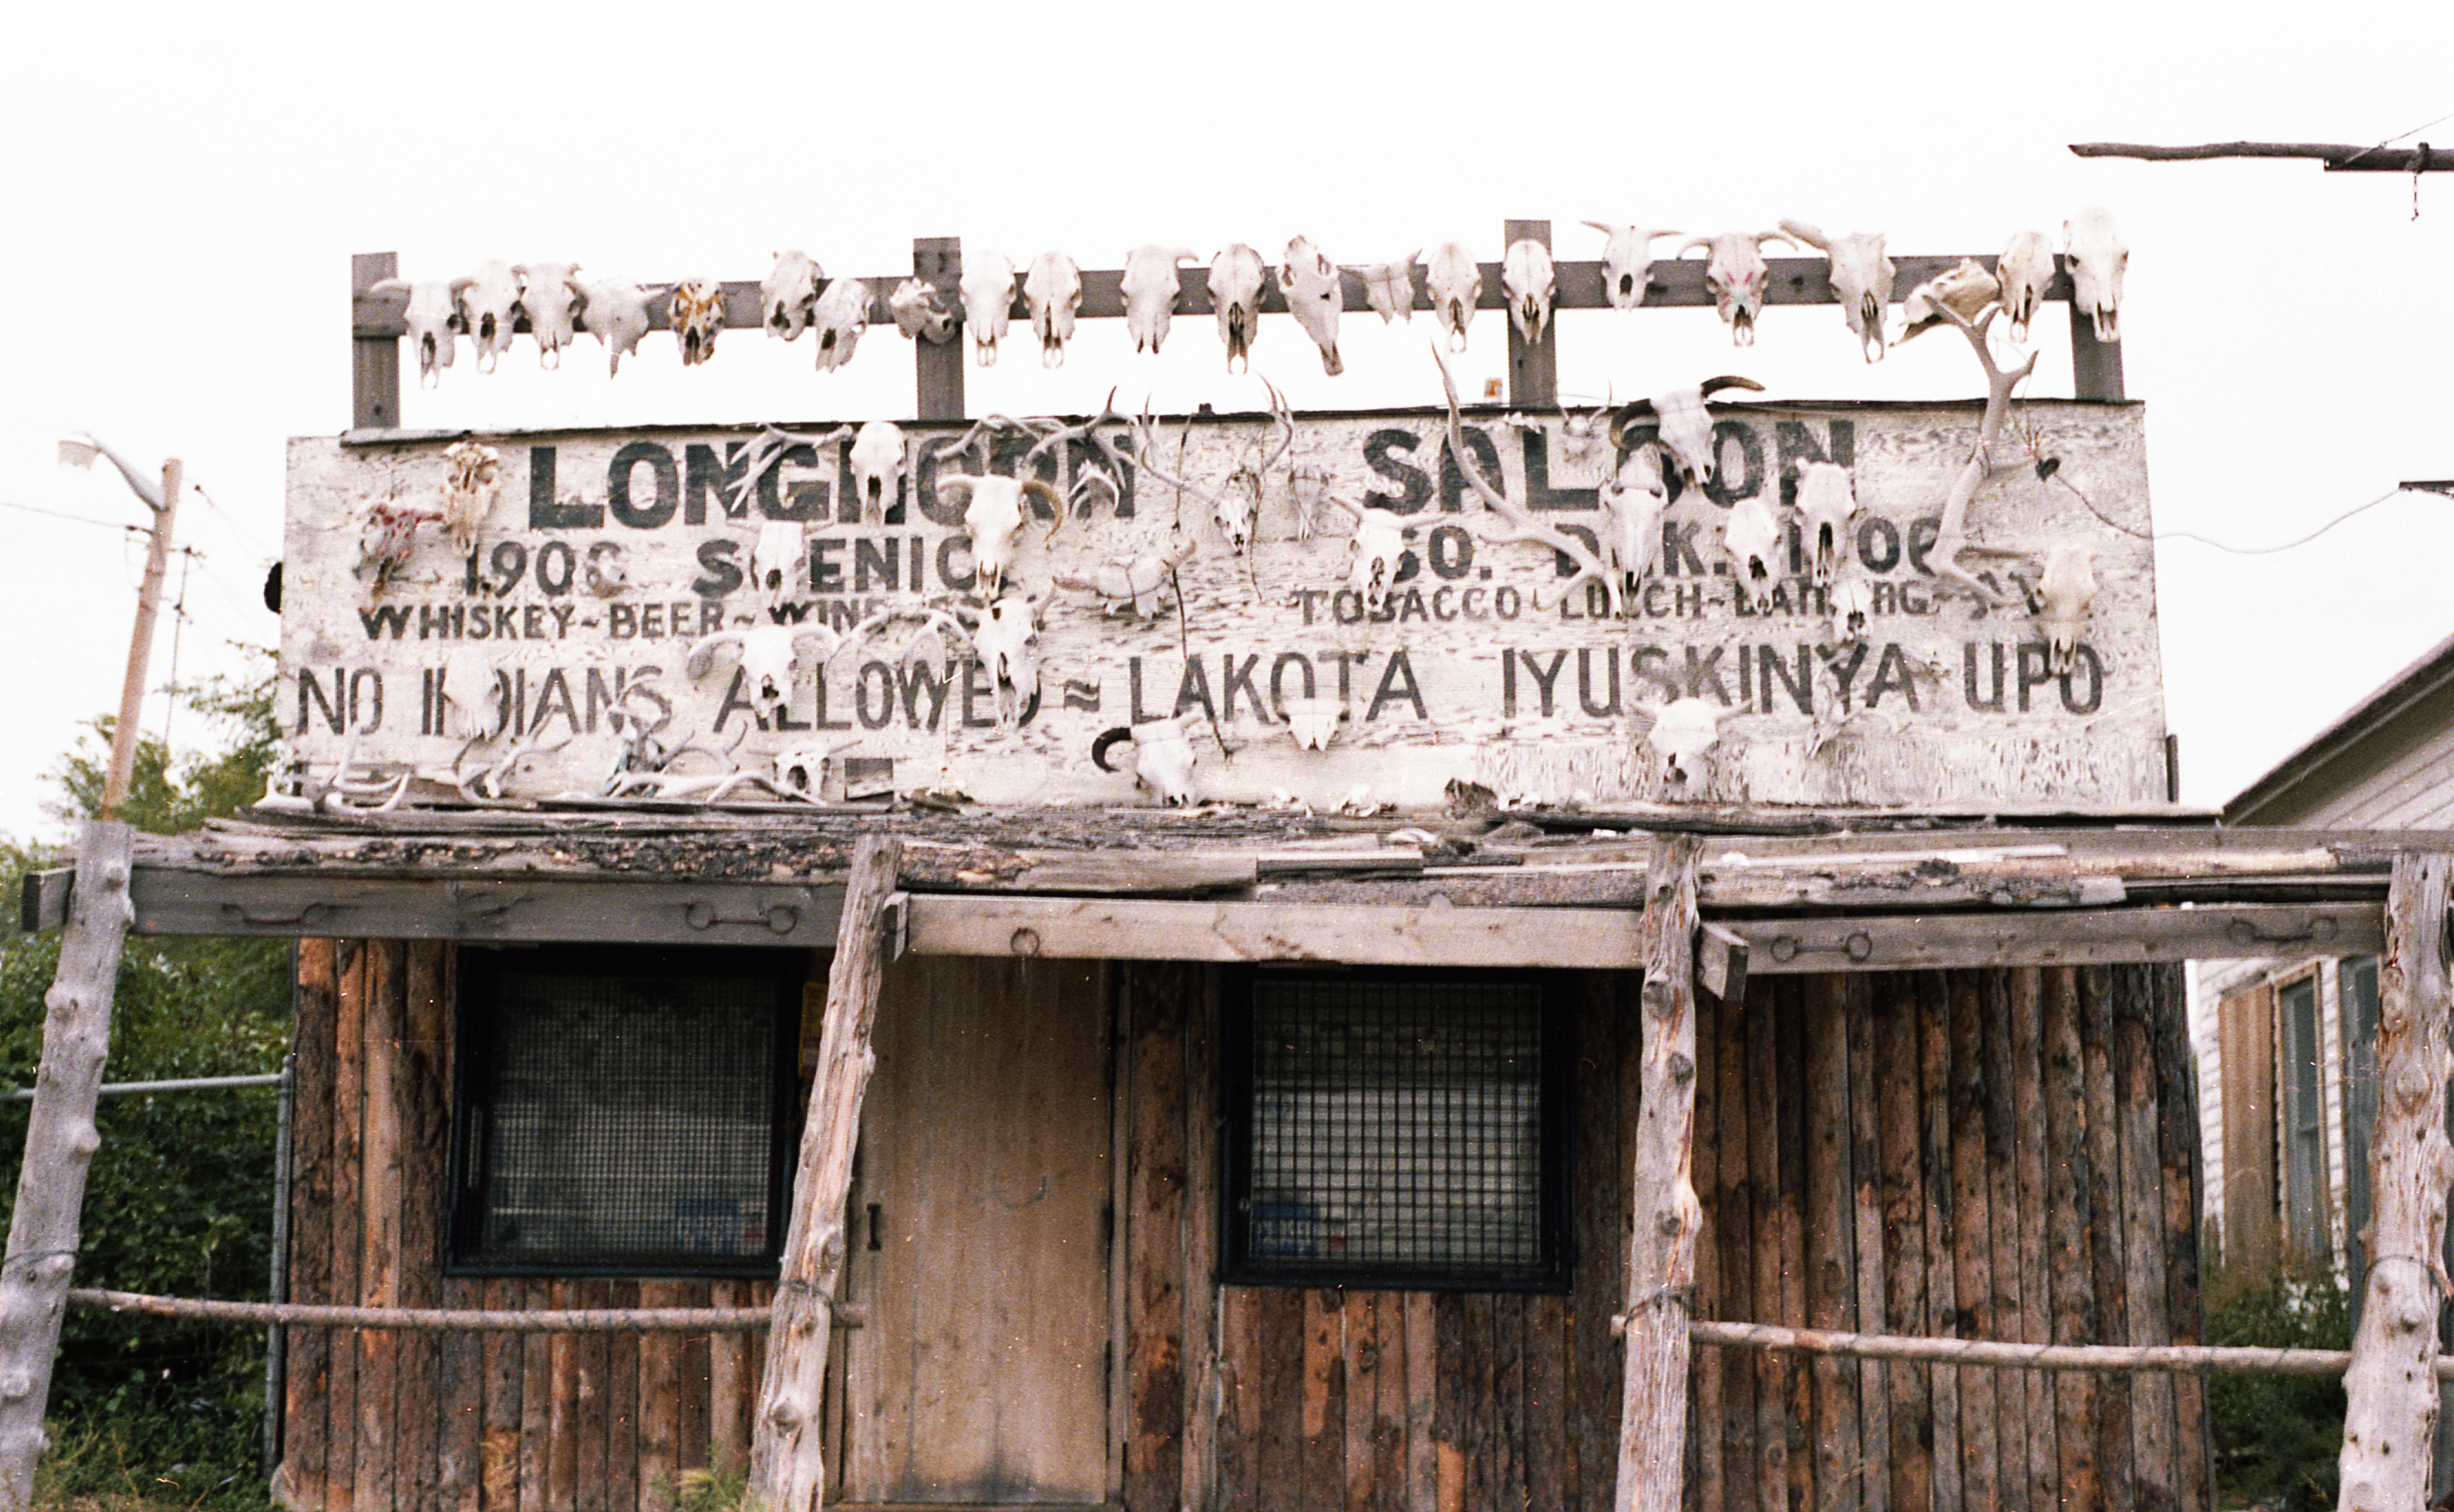 LONGHORN SALOON
1906 SCENIC SO. DAK. 1906
WHISKEY~BEER~WINE TOBACCO LUNCH~
NO INDIANS ALLOWED ~ LAKOTA IYUSKINYA UPO